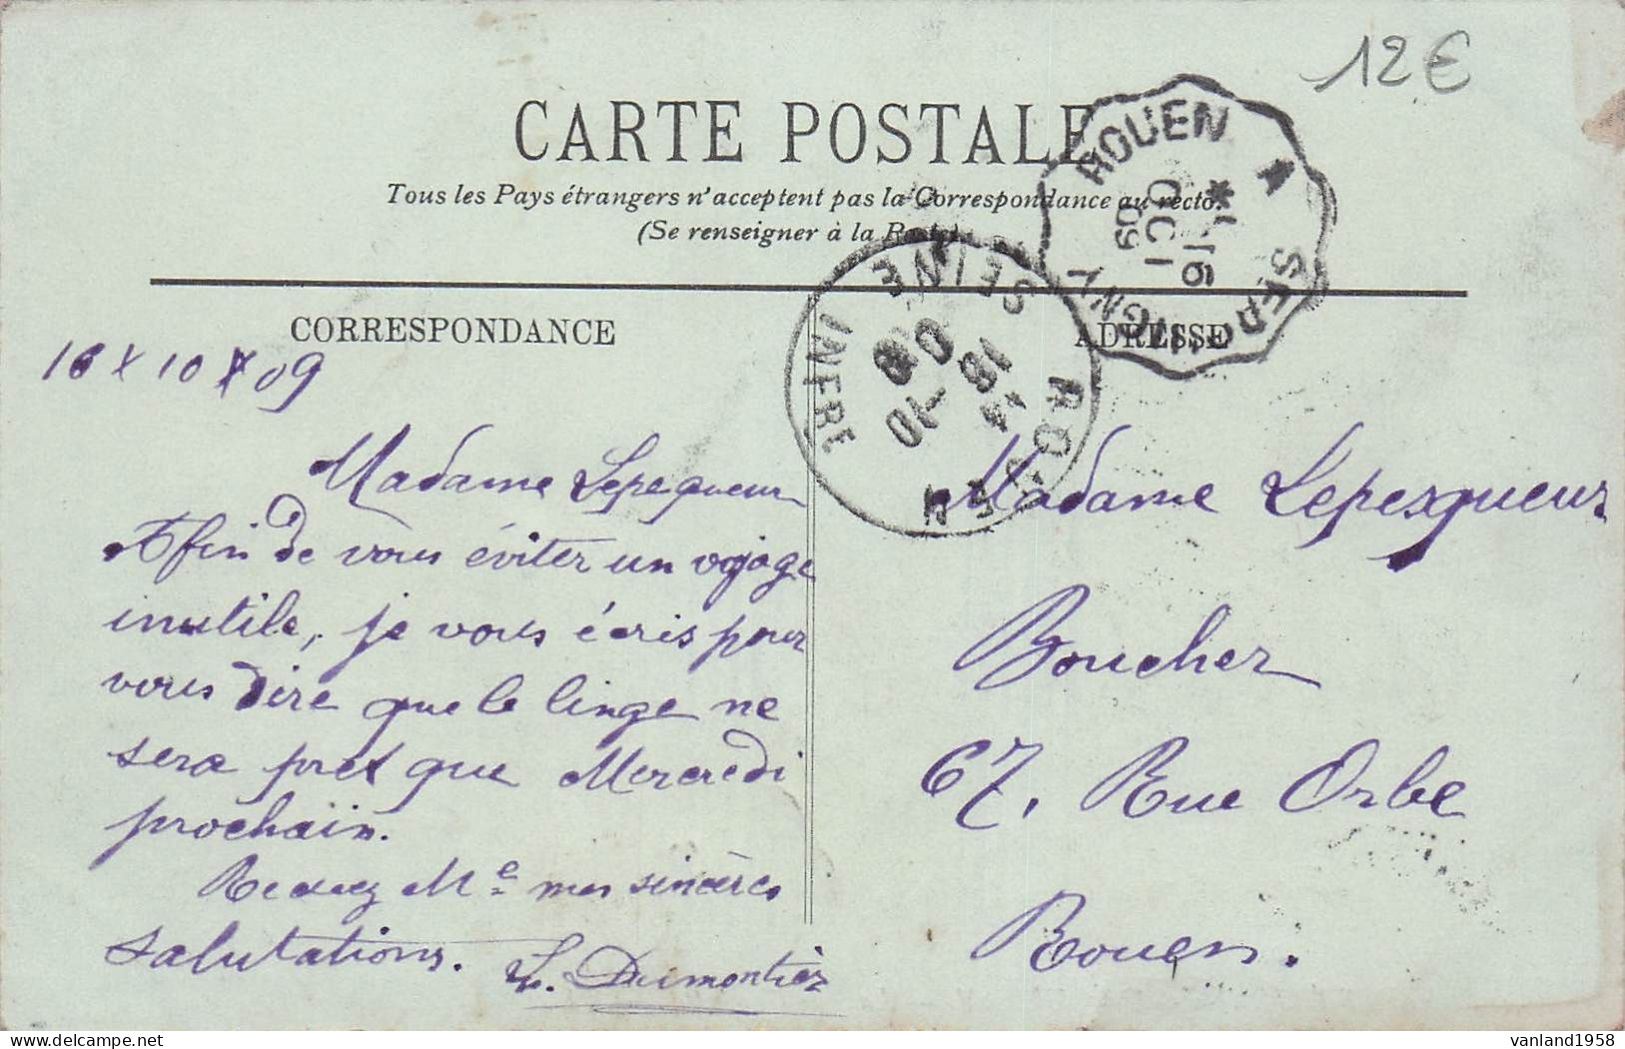 12 €
CARTE POSTALE
Tous les Pays étrangers n'acceptent pas la Correspondance au recto.
(Se renseigner à la Poste)
ROUEN A SERQUIGNY
16
OCT
09
ROUEN
SEINE INFERE
18 -10
CORRESPONDANCE
16 X 10 X 09
Madame Lepequeur
Afin de vous éviter un voyage
inutile, je vous écris pour
vous dire que le linge ne
sera pret que Mercredi
prochain.
Recevez Me mes sincères
salutations. L. Dumontier
ADRESSE
Madame Lepexqueur
Boucher
67, Rue Orbe
Rouen.
delcampe.net
vanland1958